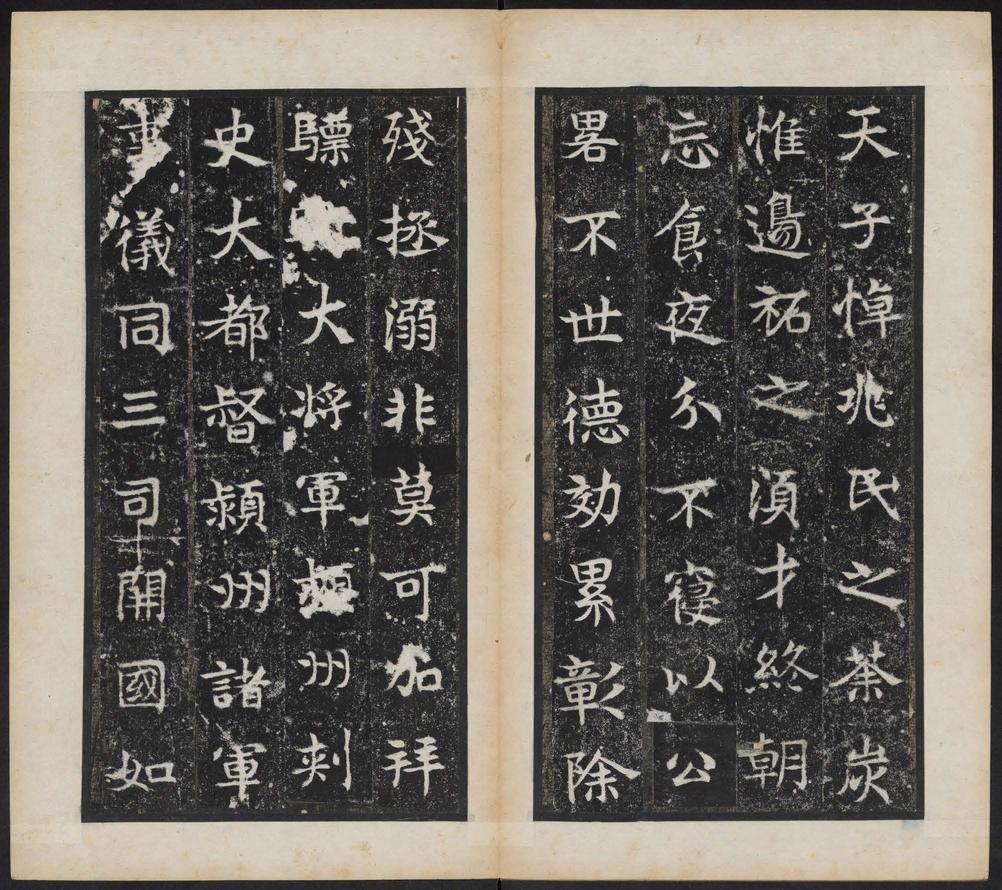 天子悼兆民之荼炭
惟邊祏之湏才終朝
忘食夜分不寑以公
畧不世德効累彰除
殘拯溺非莫可加拜
驃大將軍潁州刾
史大都督潁州諸軍
事儀同三司開國如